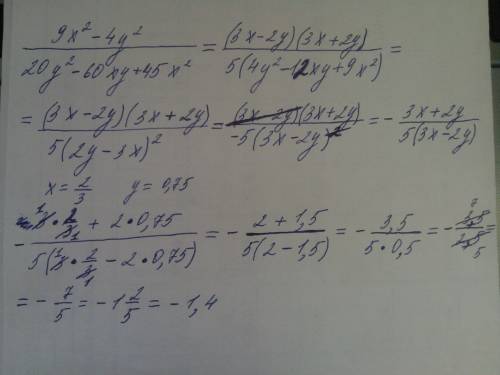 (9x² - 4y²)/(20y² - 60xy + 45x²) = ((3x - 2y)(3x + 2y))/(5(4y² - 12xy + 9x²)) =
= ((3x - 2y)(3x + 2y))/(5(2y - 3x)²) = ((3x - 2y)(3x + 2y))/(-5(3x - 2y)²) = - (3x + 2y)/(5(3x - 2y))
x = 2/3 y = 0,75
- (3 · 2/3 + 2 · 0,75)/(5(3 · 2/3 - 2 · 0,75)) = - (2 + 1,5)/(5(2 - 1,5)) = - 3,5/(5 · 0,5) = - 3,5/2,5 =
= - 7/5 = - 1 2/5 = - 1,4